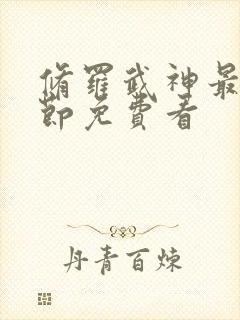 脩羅武神最
節免費看
丹青百煉